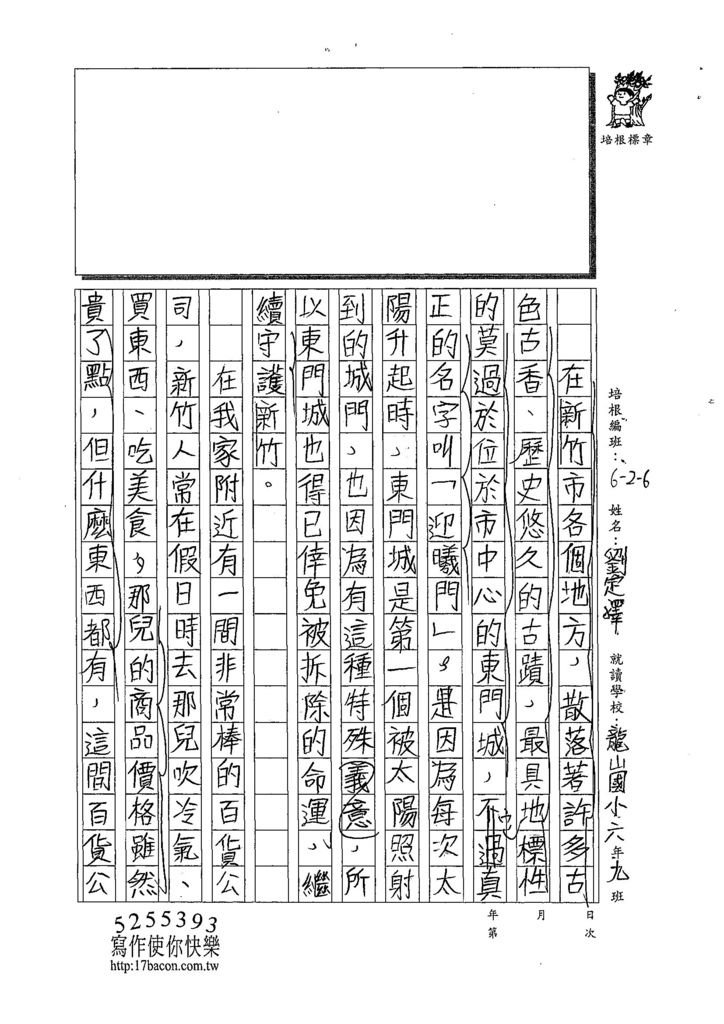 培根標章
培根編班：6-2-6 姓名：劉定嬕 就讀學校：龍山國小六年九班
在新竹市各個地方，散落著許多古
色古香、歷史悠久的古蹟，最具地標性
的莫過於位於市中心的東門城，不過真
正的名字叫「迎曦門」，是因為每次太
陽升起時，東門城是第一個被太陽照射
到的城門，也因為有這種特殊義意，所
以東門城也得已倖免被拆除的命運，繼
續守護新竹。
在我家附近有一間非常棒的百貨公
司，新竹人常在假日時去那兒吹冷氣、
買東西、吃美食，那兒的商品價格雖然
貴了點，但什麼東西都有，這間百貨公
年 月 日
第 次
5255393
寫作使你快樂
http:17bacon.com.tw